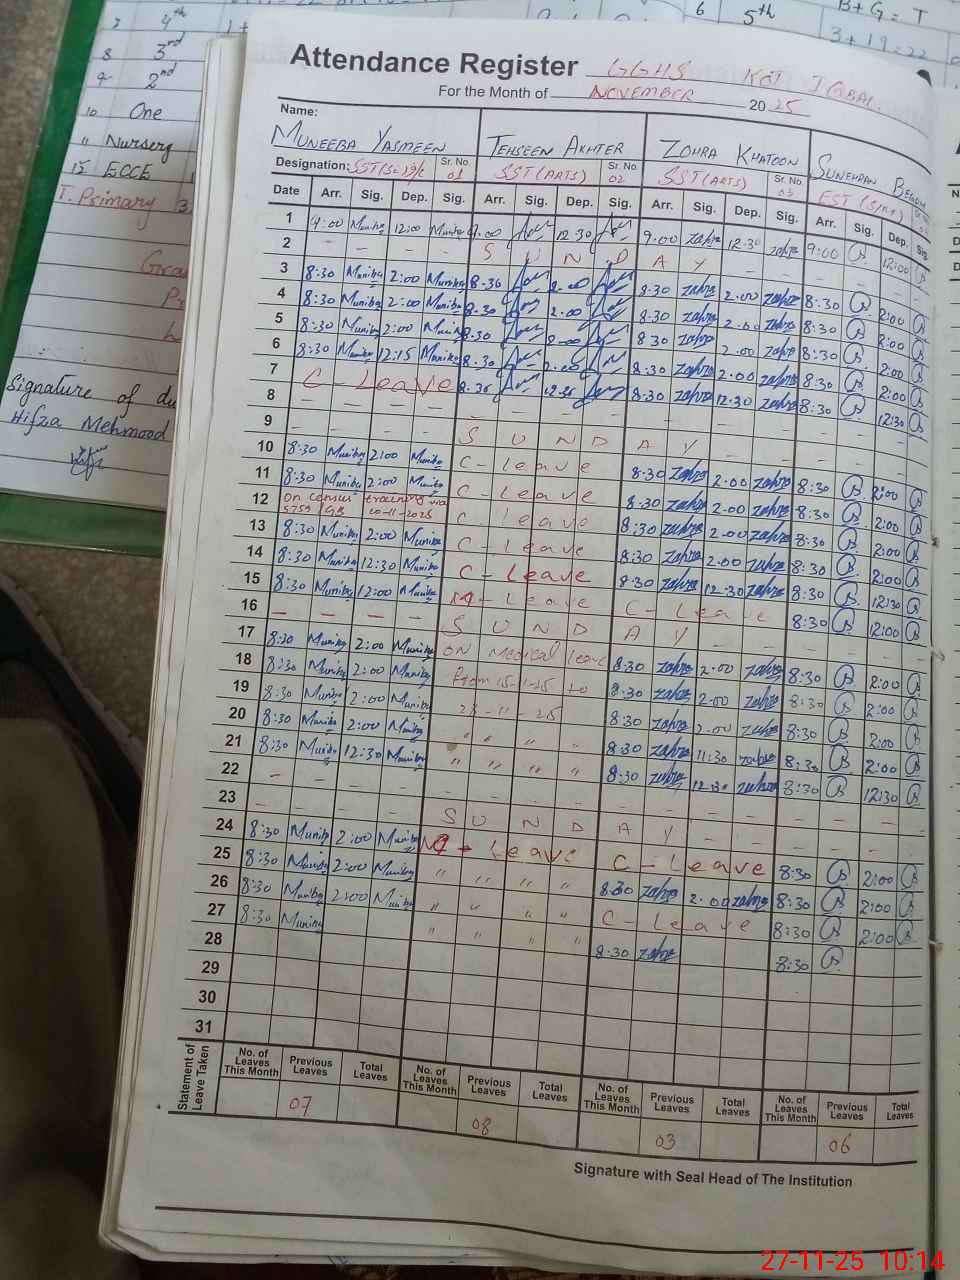 7 4th 1+
8 3rd
9 2nd
10 One
11 Nursery
15 ECCE
T. Primary 3
6 5th B+G=T
3+19=22
Signature of du
Hifza Mehmood
Attendance Register GGHS KOT IQBAL
For the Month of NOVEMBER 2025
Name: MUNEEBA YASMEEN TEHSEEN AKHTER ZOHRA KHATOON SUNEHRAN BEGUM
Designation: SST(Sc) I/C Sr. No. 01 SST (ARTS) Sr. No. 02 SST (ARTS) Sr. No. 03 EST (S/M)
Date Arr. Sig. Dep. Sig. Arr. Sig. Dep. Sig. Arr. Sig. Dep. Sig. Arr. Sig. Dep. Sig.
1 9:00 Muniba 12:00 Muniba 9.00 12.30 9.00 zahra 12.30 zahra 9:00 12:00
2 – – – – S U N D A Y – – – – – –
3 8:30 Muniba 2:00 Muniba 8.30 2.00 8.30 zahra 2.00 zahra 8:30 2:00
4 8:30 Muniba 2:00 Muniba 8.30 2.00 8.30 zahra 2.00 zahra 8:30 2:00
5 8:30 Muniba 2:00 Muniba 8.30 2.00 8.30 zahra 2.00 zahra 8:30 2:00
6 8:30 Muniba 12:15 Muniba 8.30 2.00 8.30 zahra 2.00 zahra 8:30 2:00
7 C - Leave 8.30 12.30 8.30 zahra 12.30 zahra 8:30 12:30
8 – – – – – – – – – – – – – – – –
9 – – – – S U N D A Y – – – – – –
10 8:30 Muniba 2:00 Muniba C - leave 8.30 zahra 2.00 zahra 8:30 2:00
11 8:30 Muniba 2:00 Muniba C - Leave 8.30 zahra 2.00 zahra 8:30 2:00
12 on census training via 5759/GB 10-11-2025 C - leave 8:30 zahra 2.00 zahra 8:30 2:00
13 8:30 Muniba 2:00 Muniba C - leave 8:30 zahra 2.00 zahra 8:30 2:00
14 8:30 Muniba 12:30 Muniba C - Leave 8:30 zahra 12.30 zahra 8:30 12:30
15 8:30 Muniba 12:00 Muniba M - Leave C - Leave 8:30 12:00
16 – – – – S U N D A Y – – – – – –
17 8:30 Muniba 2:00 Muniba on Medical leave 8.30 zahra 2.00 zahra 8:30 2:00
18 8:30 Muniba 2:00 Muniba From 15-11-25 to 8.30 zahra 2.00 zahra 8:30 2:00
19 8:30 Muniba 2:00 Muniba 28-11-25 8.30 zahra 2.00 zahra 8:30 2:00
20 8:30 Muniba 2:00 Muniba " " " " 8:30 zahra 11:30 zahra 8:30 2:00
21 8:30 Muniba 12:30 Muniba " " " " 8:30 zahra 12.30 zahra 8:30 12:30
22 – – – – – – – – – – – – – –
23 – – – – S U N D A Y – – – – – –
24 8:30 Muniba 2:00 Muniba M - Leave C - Leave 8:30 2:00
25 8:30 Muniba 2:00 Muniba " " " " 8:30 zahra 2.00 zahra 8:30 2:00
26 8:30 Muniba 2:00 Muniba " " " " C - Leave 8:30 2:00
27 8:30 Muniba " " " " 8.30 zahra 8:30
28
29
30
31
Statement of Leave Taken
No. of Leaves This Month Previous Leaves Total Leaves No. of Leaves This Month Previous Leaves Total Leaves No. of Leaves This Month Previous Leaves Total Leaves No. of Leaves This Month Previous Leaves Total Leaves
07 08 03 06
Signature with Seal Head of The Institution
27-11-25 10:14